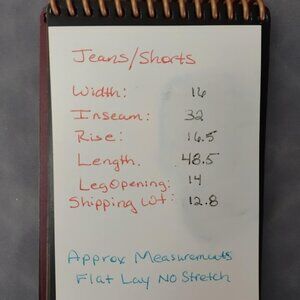 Jeans/Shorts
Width: 16
Inseam: 32
Rise: 16.5
Length. 48.5
Leg Opening: 14
Shipping Wt: 12.8
Approx Measurements
Flat Lay No Stretch